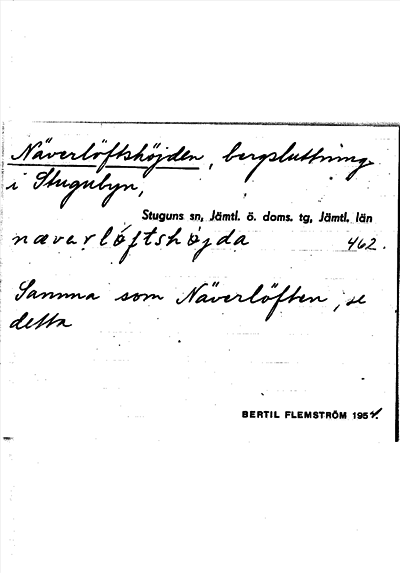 Näverlöftshöjden, bergsluttning
i Stugubyn,
Stuguns sn, Jämtl. ö. doms. tg, Jämtl. län
næverlöftshöjda 462.
Samma som Näverlöften, se
detta
BERTIL FLEMSTRÖM 1954.